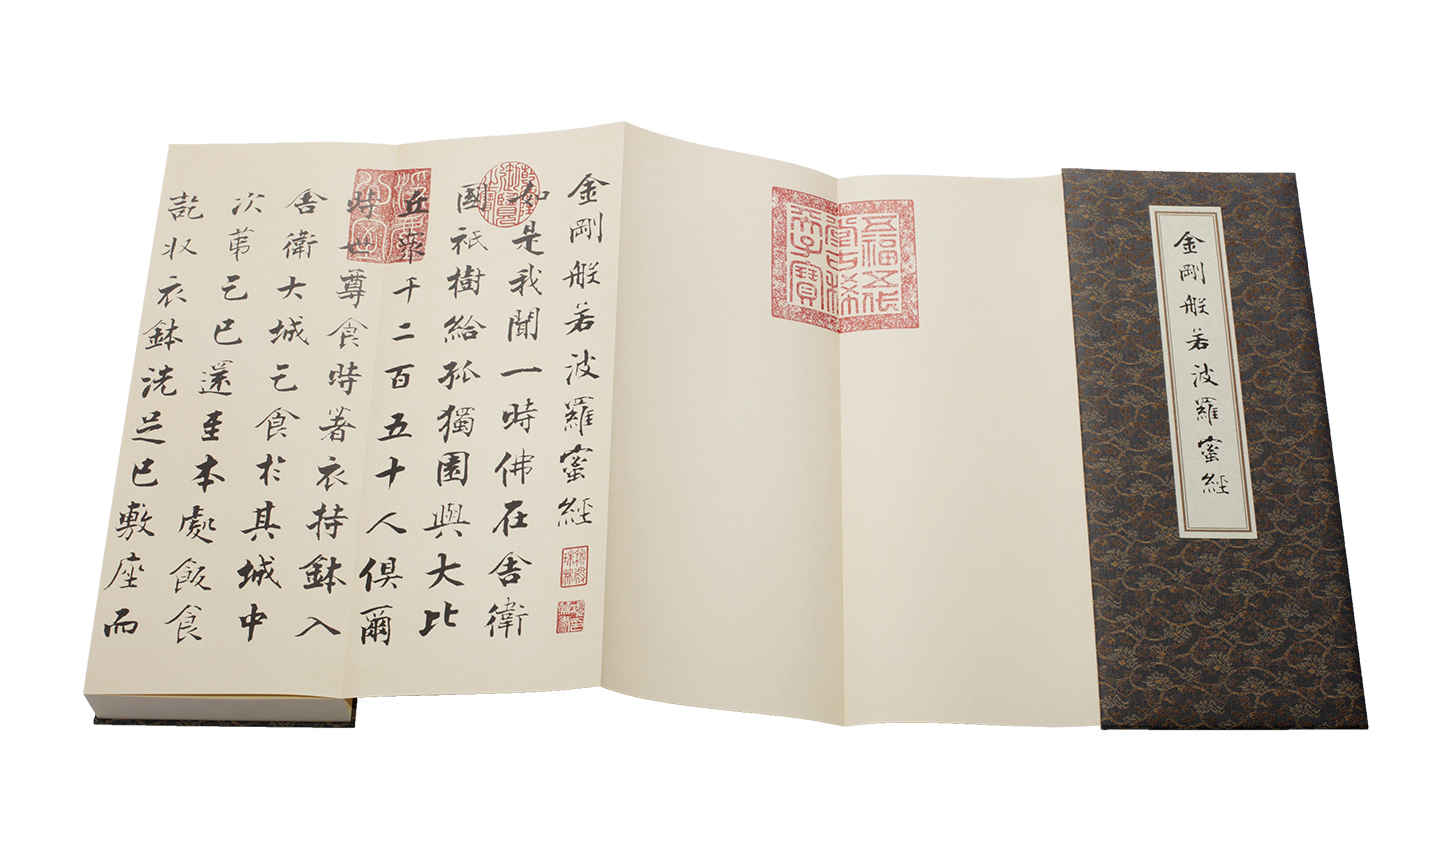 金剛般若波羅蜜經
五福五代
堂古稀
天子寶
金剛般若波羅蜜經
如是我聞一時佛在舍衛
國祇樹給孤獨園與大比
丘衆千二百五十人俱爾
時世尊食時著衣持鉢入
舍衛大城乞食扵其城中
次苐乞已還至本處飯食
訖収衣鉢洗足已敷座而